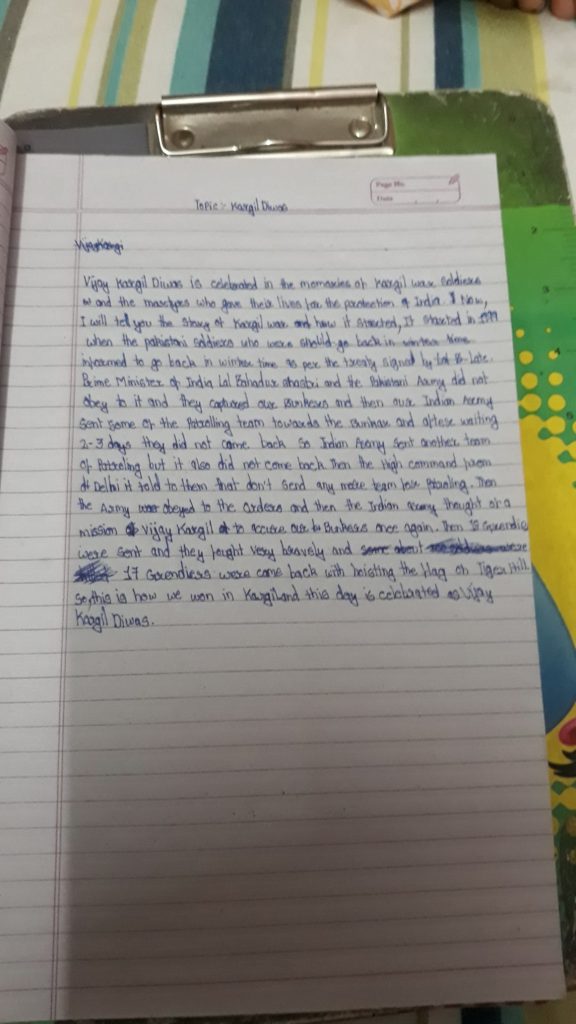 Page No.
Date
Topic :- Kargil Diwas
Vijay Kargi
Vijay Kargil Diwas is celebrated in the memories of Kargil war Soldiers
and the marters who gave their lives for the parotection of India. Now,
I will tell you the story of Kargil war and how it started, It started in 1999
when the pakistani soldiers who were should go back in winter time
informed to go back in winter time as per the treaty signed by Late.
Prime Minister of India Lal Bahadur shastri and the Pakistani Army did not
obey to it and they captured our Bunkers and then our Indian Army
sent some of the Patrolling team towards the Bunkar and after waiting
2-3 days they did not come back So Indian Army sent another team
of Patroling but it also did not come back. Then the High command from
Delhi it told to them that don't send any more team for Patroling. Then
the Army obeyed to the orders and then the Indian army thought of a
mission Vijay Kargil to our Bunkers once again. Then
were sent and they faught very bravely and some about
17 were came back with hoisting the flag on Tiger Hill
So, this is how we won in Kargil and this day is celebrated as Vijay
Kargil Diwas.
2
3
4
5